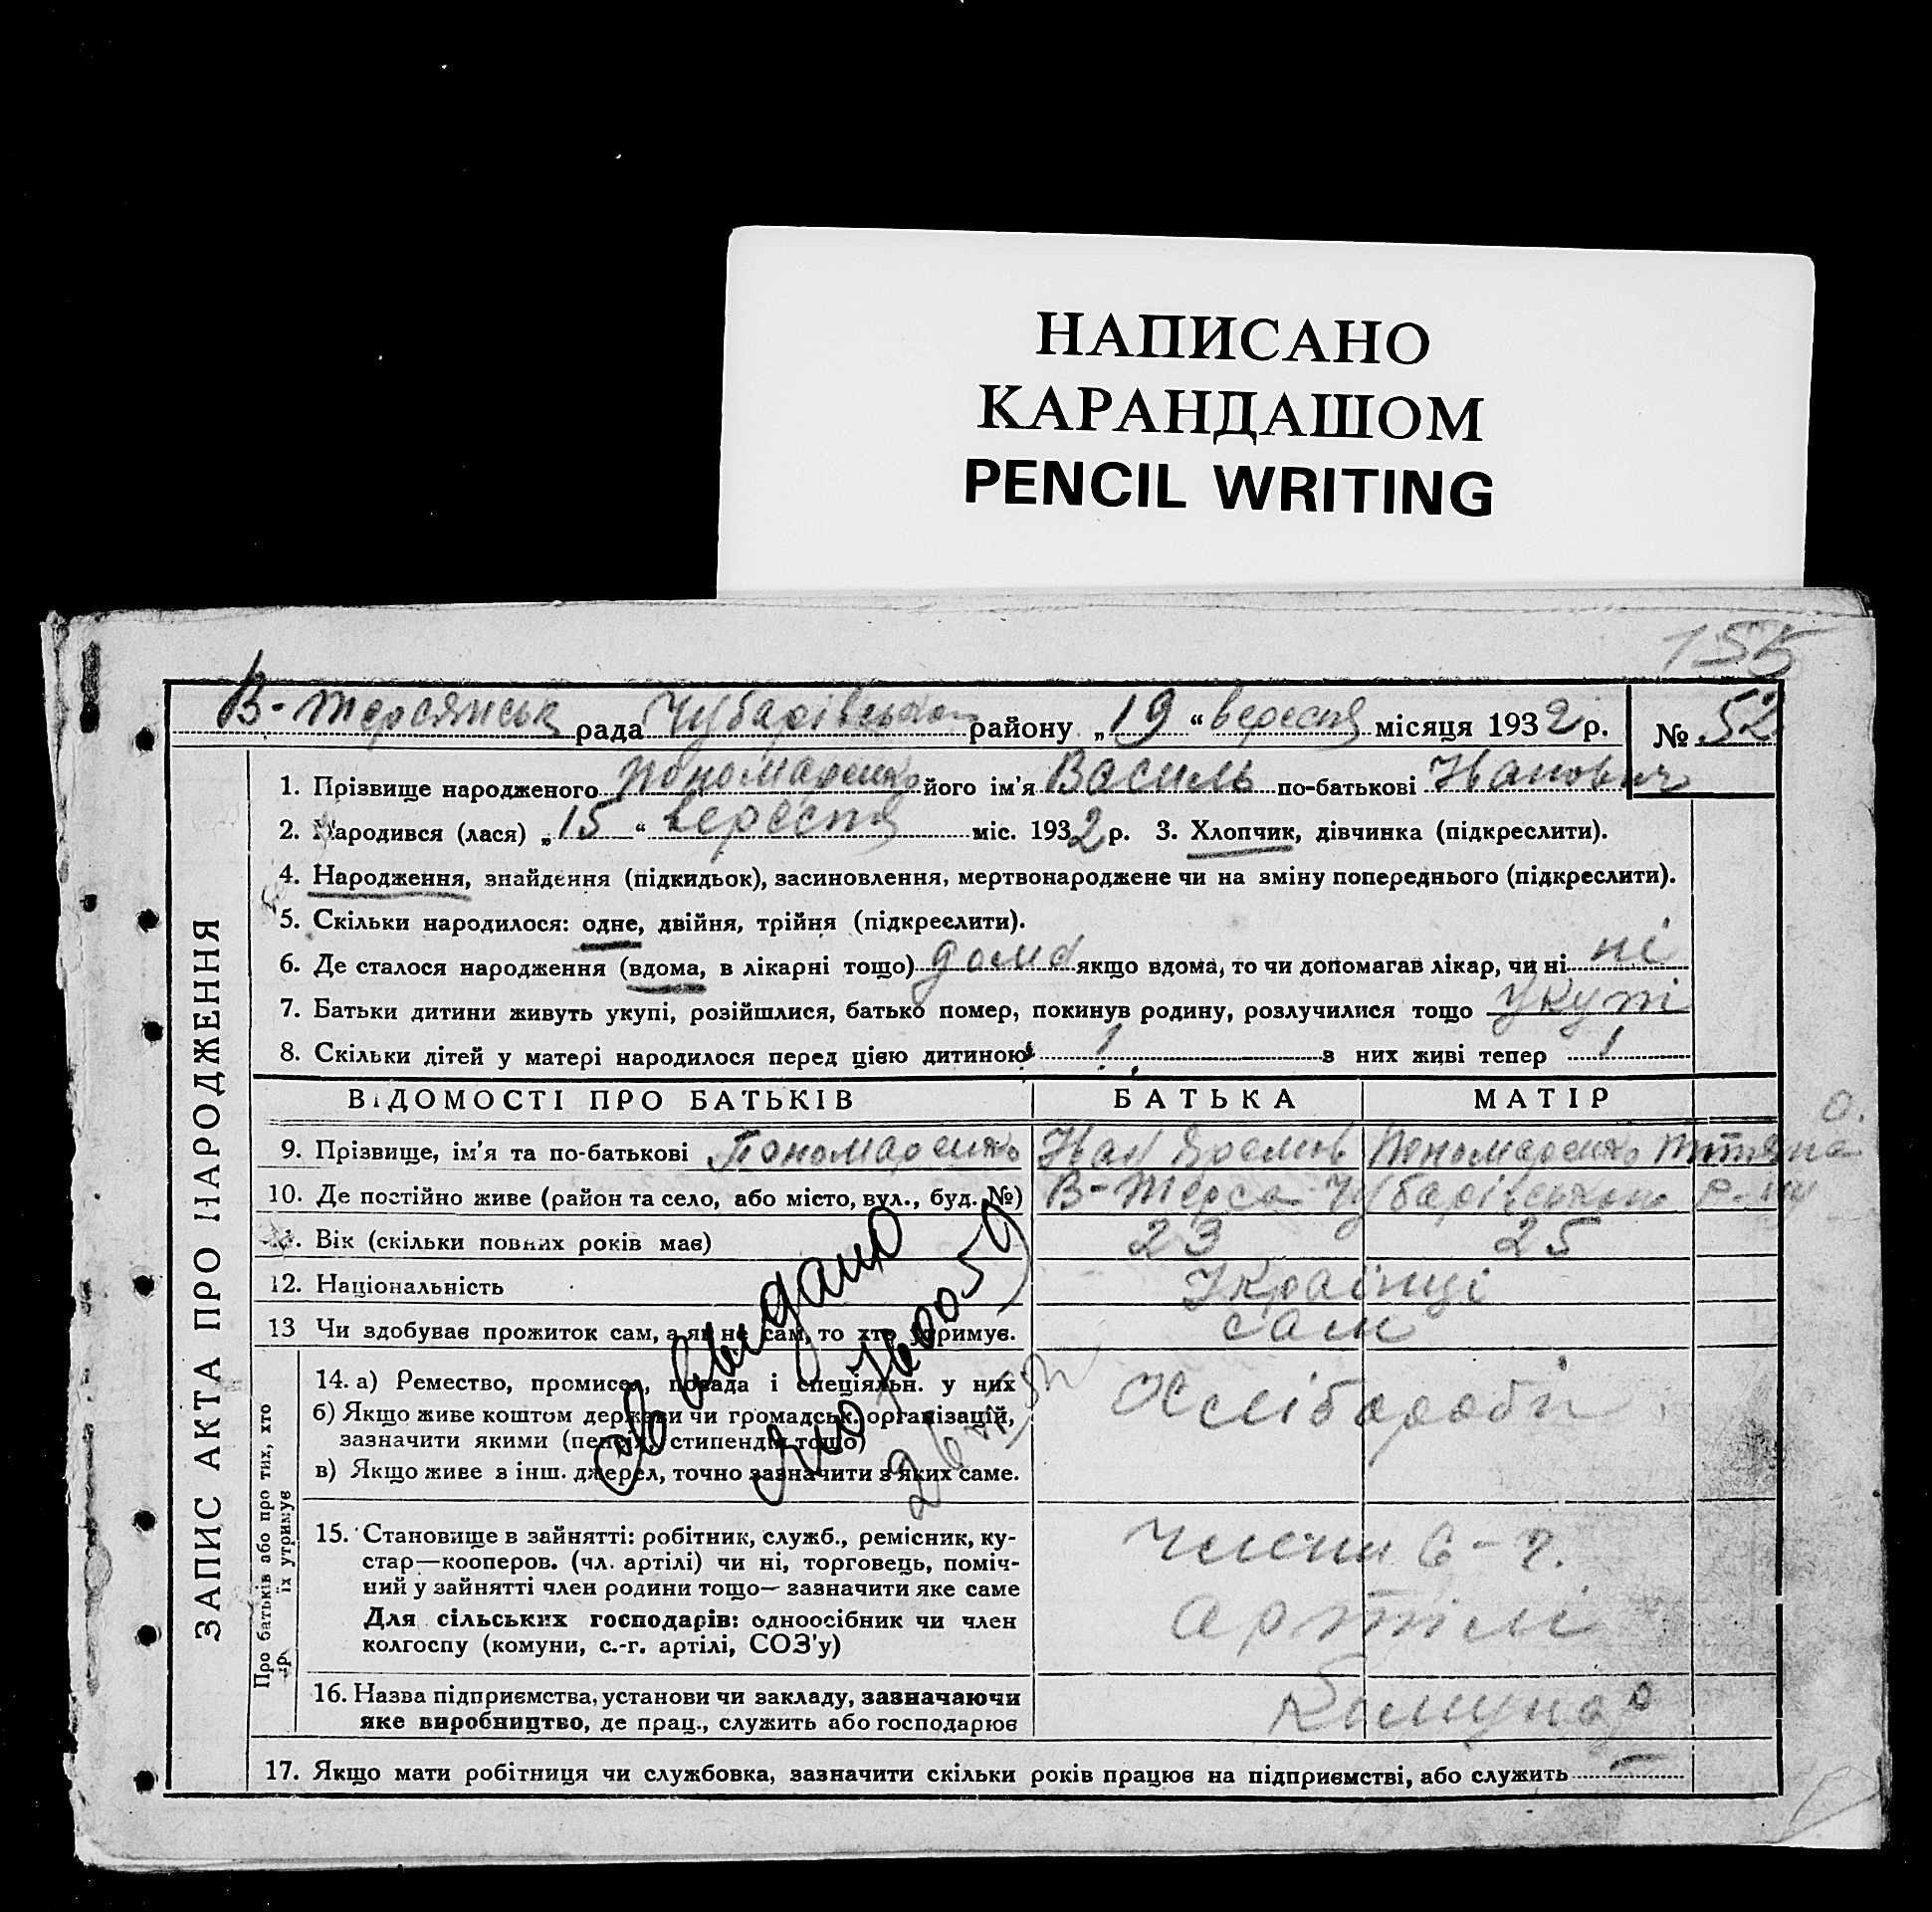 НАПИСАНО
КАРАНДАШОМ
PENCIL WRITING
155
В-Терсянськ рада Чубарівського району „19“ вересня місяця 1932 р. № 52
ЗАПИС АКТА ПРО НАРОДЖЕННЯ
1. Прізвище народженого Пономаренко його ім'я Василь по-батькові Іванович
2. Народився (лася) „15“ вересня міс. 1932 р. 3. Хлопчик, дівчинка (підкреслити).
4. Народження, знайдення (підкидьок), засиновлення, мертвонароджене чи на зміну попереднього (підкреслити).
5. Скільки народилося: одне, двійня, трійня (підкреслити).
6. Де сталося народження (вдома, в лікарні тощо) дома якщо вдома, то чи допомагав лікар, чи ні ні
7. Батьки дитини живуть укупі, розійшлися, батько помер, покинув родину, розлучилися тощо укупі
8. Скільки дітей у матері народилося перед цією дитиною 1 з них живі тепер 1
ВІДОМОСТІ ПРО БАТЬКІВ БАТЬКА МАТІР
9. Прізвище, ім'я та по-батькові Пономаренко Іван Яремов Пономаренко Тітяна О.
10. Де постійно живе (район та село, або місто, вул., буд. №) В-Терса Чубарівського р-ну
11. Вік (скільки повних років має) 23 25
12. Національність Українці
13 Чи здобуває прожиток сам, а як не сам, то хто утримує. сам
Про батьків або про тих, хто їх утримує
14. а) Ремество, промисел, посада і спеціяльн. у них Хлібороби
б) Якщо живе коштом держави чи громадськ. організацій,
зазначити якими (пенсія, стипендія тощо)
в) Якщо живе з інш. джерел, точно зазначити з яких саме.
15. Становище в зайнятті: робітник, служб., ремісник, ку-
стар—кооперов. (чл. артілі) чи ні, торговець, поміч-
ний у зайнятті член родини тощо— зазначити яке саме
Для сільських господарів: одноосібник чи член
колгоспу (комуни, с.-г. артілі, СОЗ'у)
члени с-г.
артілі
16. Назва підприємства, установи чи закладу, зазначаючи
яке виробництво, де прац., служить або господарює
Комунар
17. Якщо мати робітниця чи службовка, зазначити скільки років працює на підприємстві, або служить —